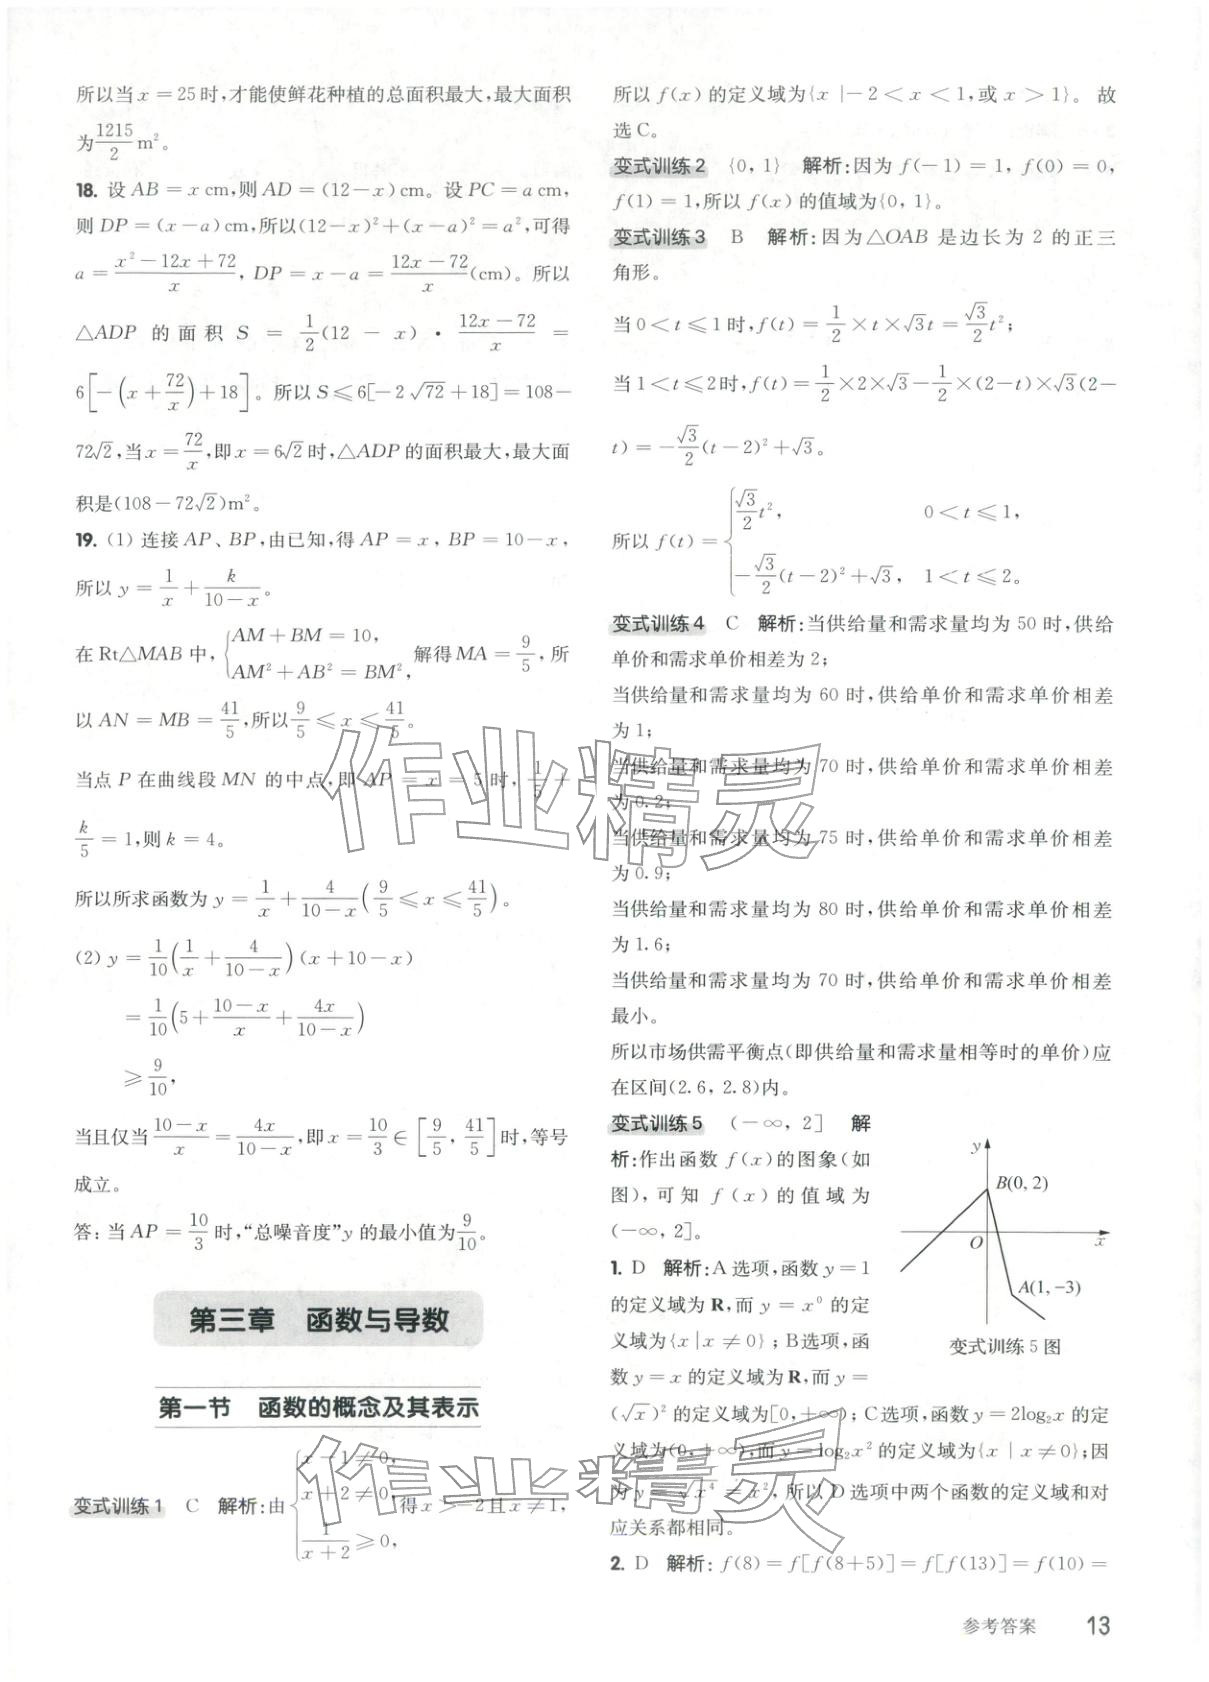 所以当 x=25 时,才能使鲜花种植的总面积最大,最大面积
为 1215/2 m²。
18. 设 AB=x cm,则 AD=(12-x) cm。设 PC=a cm,
则 DP=(x-a) cm,所以(12-x)²+(x-a)²=a²,可得
a=(x²-12x+72)/x, DP=x-a=(12x-72)/x(cm)。所以
△ADP 的面积 S=1/2(12-x)·(12x-72)/x=
6[-(x+72/x)+18]。所以 S≤6[-2√72+18]=108-
72√2,当 x=72/x,即 x=6√2 时,△ADP 的面积最大,最大面
积是(108-72√2)m²。
19. (1) 连接 AP、BP,由已知,得 AP=x, BP=10-x,
所以 y=1/x+k/(10-x)。
在 Rt△MAB 中,{AM+BM=10, AM²+AB²=BM², 解得 MA=9/5,所
以 AN=MB=41/5,所以 9/5≤x≤41/5。
当点 P 在曲线段 MN 的中点,即 AP=x=5 时, 1/5+
k/5=1,则 k=4。
所以所求函数为 y=1/x+4/(10-x)(9/5≤x≤41/5)。
(2) y=1/10(1/x+4/(10-x))(x+10-x)
=1/10(5+(10-x)/x+4x/(10-x))
≥9/10,
当且仅当(10-x)/x=4x/(10-x),即 x=10/3∈[9/5, 41/5]时,等号
成立。
答:当 AP=10/3 时,“总噪音度”y 的最小值为 9/10。
第三章 函数与导数
第一节 函数的概念及其表示
变式训练1 C 解析:由{x-1≠0, x+2≠0, 1/(x+2)≥0, 得 x>-2 且 x≠1,
所以 f(x) 的定义域为{x|-2<x<1,或 x>1}。故
选C。
变式训练2 {0, 1} 解析:因为 f(-1)=1, f(0)=0,
f(1)=1,所以 f(x) 的值域为{0, 1}。
变式训练3 B 解析:因为△OAB 是边长为 2 的正三
角形。
当 0<t≤1 时,f(t)=1/2×t×√3t=√3/2 t²;
当 1<t≤2 时,f(t)=1/2×2×√3-1/2×(2-t)×√3(2-
t)=-√3/2(t-2)²+√3。
所以 f(t)={√3/2 t², 0<t≤1, -√3/2(t-2)²+√3, 1<t≤2。
变式训练4 C 解析:当供给量和需求量均为 50 时,供给
单价和需求单价相差为 2;
当供给量和需求量均为 60 时,供给单价和需求单价相差
为 1;
当供给量和需求量均为 70 时,供给单价和需求单价相差
为 0.2;
当供给量和需求量均为 75 时,供给单价和需求单价相差
为 0.9;
当供给量和需求量均为 80 时,供给单价和需求单价相差
为 1.6;
当供给量和需求量均为 70 时,供给单价和需求单价相差
最小。
所以市场供需平衡点(即供给量和需求量相等时的单价)应
在区间(2.6, 2.8)内。
变式训练5 (-∞, 2] 解
析:作出函数 f(x)的图象(如
图),可知 f(x)的值域为
(-∞, 2]。
y
B(0, 2)
O
x
A(1, -3)
变式训练 5 图
1. D 解析:A 选项,函数 y=1
的定义域为 R,而 y=x⁰ 的定
义域为{x|x≠0};B选项,函
数 y=x 的定义域为 R,而 y=
(√x)² 的定义域为[0,+∞);C选项,函数 y=2log₂x 的定
义域为(0,+∞),而 y=log₂x² 的定义域为{x|x≠0};因
为 y=√x⁴=x²,所以 D 选项中两个函数的定义域和对
应关系都相同。
2. D 解析: f(8)=f[f(8+5)]=f[f(13)]=f(10)=
参考答案 13
作业精灵
作业精灵